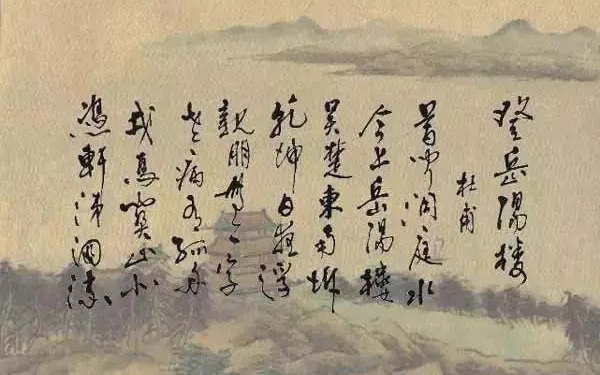 登岳陽楼
杜甫
昔闻洞庭水
今上岳陽樓
吴楚東南坼
乾坤日夜浮
親朋無一字
老病有孤舟
戎馬關山北
憑軒涕泗流